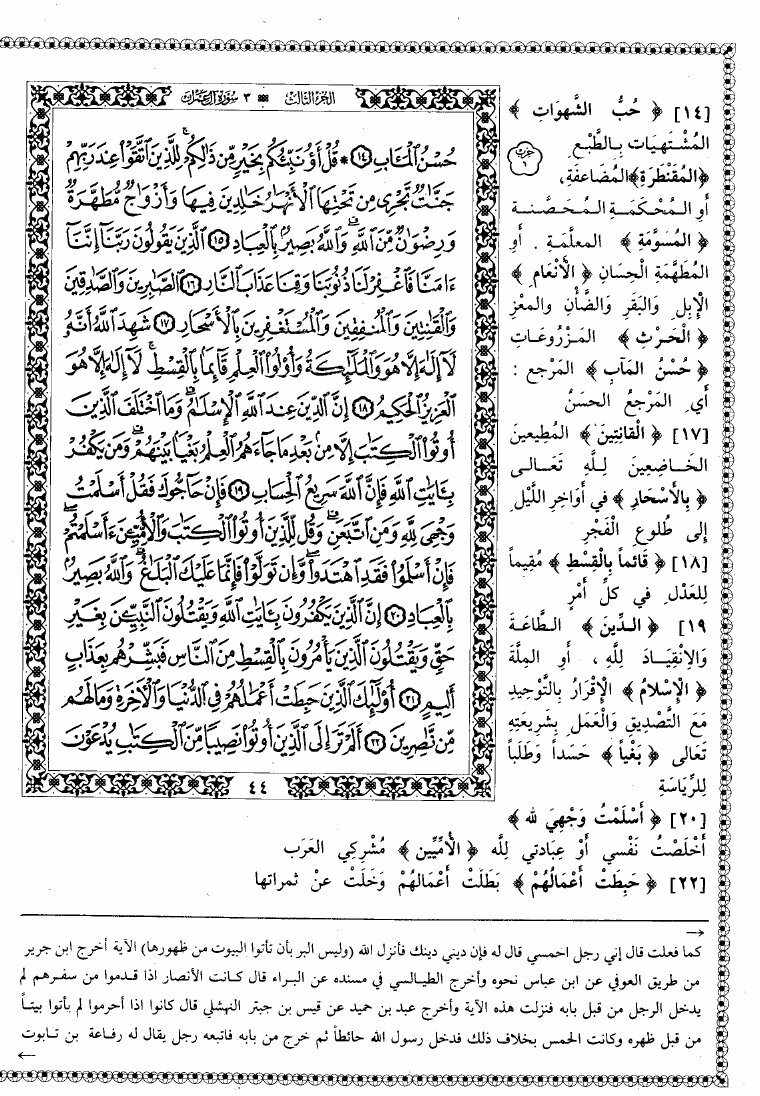 الجزء الثالث ٣ سورة آل عمران
حُسْنُ ٱلْمَـَٔابِ ﴿١٤﴾ * قُلْ أَؤُنَبِّئُكُم بِخَيْرٍ مِّن ذَٰلِكُمْ ۚ لِلَّذِينَ ٱتَّقَوْا۟ عِندَ رَبِّهِمْ
جَنَّٰتٌ تَجْرِى مِن تَحْتِهَا ٱلْأَنْهَٰرُ خَٰلِدِينَ فِيهَا وَأَزْوَٰجٌ مُّطَهَّرَةٌ
وَرِضْوَٰنٌ مِّنَ ٱللَّهِ ۗ وَٱللَّهُ بَصِيرٌۢ بِٱلْعِبَادِ ﴿١٥﴾ ٱلَّذِينَ يَقُولُونَ رَبَّنَآ إِنَّنَآ
ءَامَنَّا فَٱغْفِرْ لَنَا ذُنُوبَنَا وَقِنَا عَذَابَ ٱلنَّارِ ﴿١٦﴾ ٱلصَّٰبِرِينَ وَٱلصَّٰدِقِينَ
وَٱلْقَٰنِتِينَ وَٱلْمُنفِقِينَ وَٱلْمُسْتَغْفِرِينَ بِٱلْأَسْحَارِ ﴿١٧﴾ شَهِدَ ٱللَّهُ أَنَّهُۥ
لَآ إِلَٰهَ إِلَّا هُوَ وَٱلْمَلَٰٓئِكَةُ وَأُو۟لُوا۟ ٱلْعِلْمِ قَآئِمًۢا بِٱلْقِسْطِ ۚ لَآ إِلَٰهَ إِلَّا هُوَ
ٱلْعَزِيزُ ٱلْحَكِيمُ ﴿١٨﴾ إِنَّ ٱلدِّينَ عِندَ ٱللَّهِ ٱلْإِسْلَٰمُ ۗ وَمَا ٱخْتَلَفَ ٱلَّذِينَ
أُوتُوا۟ ٱلْكِتَٰبَ إِلَّا مِنۢ بَعْدِ مَا جَآءَهُمُ ٱلْعِلْمُ بَغْيًۢا بَيْنَهُمْ ۗ وَمَن يَكْفُرْ
بِـَٔايَٰتِ ٱللَّهِ فَإِنَّ ٱللَّهَ سَرِيعُ ٱلْحِسَابِ ﴿١٩﴾ فَإِنْ حَآجُّوكَ فَقُلْ أَسْلَمْتُ
وَجْهِىَ لِلَّهِ وَمَنِ ٱتَّبَعَنِ ۗ وَقُل لِّلَّذِينَ أُوتُوا۟ ٱلْكِتَٰبَ وَٱلْأُمِّيِّـۧنَ ءَأَسْلَمْتُمْ ۚ
فَإِنْ أَسْلَمُوا۟ فَقَدِ ٱهْتَدَوا۟ ۖ وَّإِن تَوَلَّوْا۟ فَإِنَّمَا عَلَيْكَ ٱلْبَلَٰغُ ۗ وَٱللَّهُ بَصِيرٌۢ
بِٱلْعِبَادِ ﴿٢٠﴾ إِنَّ ٱلَّذِينَ يَكْفُرُونَ بِـَٔايَٰتِ ٱللَّهِ وَيَقْتُلُونَ ٱلنَّبِيِّـۧنَ بِغَيْرِ
حَقٍّ وَيَقْتُلُونَ ٱلَّذِينَ يَأْمُرُونَ بِٱلْقِسْطِ مِنَ ٱلنَّاسِ فَبَشِّرْهُم بِعَذَابٍ
أَلِيمٍ ﴿٢١﴾ أُو۟لَٰٓئِكَ ٱلَّذِينَ حَبِطَتْ أَعْمَٰلُهُمْ فِى ٱلدُّنْيَا وَٱلْءَاخِرَةِ وَمَا لَهُم
مِّن نَّٰصِرِينَ ﴿٢٢﴾ أَلَمْ تَرَ إِلَى ٱلَّذِينَ أُوتُوا۟ نَصِيبًا مِّنَ ٱلْكِتَٰبِ يُدْعَوْنَ
٤٤
[١٤] ﴿ حُبُّ الشَّهواتِ ﴾
المُشْتهَيات بالطَّبْعِ
﴿المُقَنْطَرة﴾ المُضاعفة،
أو المُحْكَمَة المُحَصَّنة
﴿ المُسَوَّمَة ﴾ المعلّمَة . أو
المُطَهَّمَة الحِسَان ﴿ الأَنْعَام ﴾
الإبل والبَقَر والضَّأن والمعْز
﴿ الْحَرْث ﴾ المَزْرُوعَات
﴿ حُسْنُ المَآب ﴾ المَرْجع :
أي المَرْجعُ الحسَنُ
[١٧] ﴿ القَانِتِينَ ﴾ المُطِيعين
الخَاضِعِينَ لِلَّهِ تَعَالى
﴿ بِالأَسْحَار ﴾ في أَوَاخِر اللَّيْل
إلى طُلُوع الْفَجْر
[١٨] ﴿ قَائماً بِالْقِسْط ﴾ مُقِيماً
لِلعَدْل في كلِّ أَمْرٍ
١٩] ﴿ الدِّينَ ﴾ الطَّاعَة
وَالِانْقِيَادَ لِلَّهِ ، أو المِلَّة
﴿ الإِسْلامُ ﴾ الإقْرَارُ بِالتَّوْحِيدِ
مَعَ التَّصْدِيقِ وَالْعَمَلِ بِشَرِيعَتِهِ
تَعَالَى ﴿ بَغْياً ﴾ حَسَداً وَطَلَباً
لِلرِّيَاسَةِ
[٢٠] ﴿ أَسْلَمْتُ وَجْهِيَ لله ﴾
أَخْلَصْتُ نَفْسي أَوْ عِبَادتي لِلَّه ﴿ الْأُمِّيِّين ﴾ مُشْرِكي العَرَب
[٢٢] ﴿ حَبِطَتْ أَعْمَالُهُمْ ﴾ بَطَلَتْ أَعْمَالهُمْ وَخَلَتْ عنْ ثمراتها
→
كما فعلت قال إني رجل احمسي قال له فإن ديني دينك فأنزل الله (وليس البر بأن تأتوا البيوت من ظهورها) الآية أخرج ابن جرير
من طريق العوفي عن ابن عباس نحوه وأخرج الطيالسي في مسنده عن البراء قال كانت الأنصار اذا قدموا من سفرهم لم
يدخل الرجل من قبل بابه فنزلت هذه الآية وأخرج عبد بن حميد عن قيس بن جبتر النهشلي قال كانوا اذا أحرموا لم يأتوا بيتاً
من قبل ظهره وكانت الحمس بخلاف ذلك فدخل رسول الله حائطاً ثم خرج من بابه فاتبعه رجل يقال له رفاعة بن تابوت
←